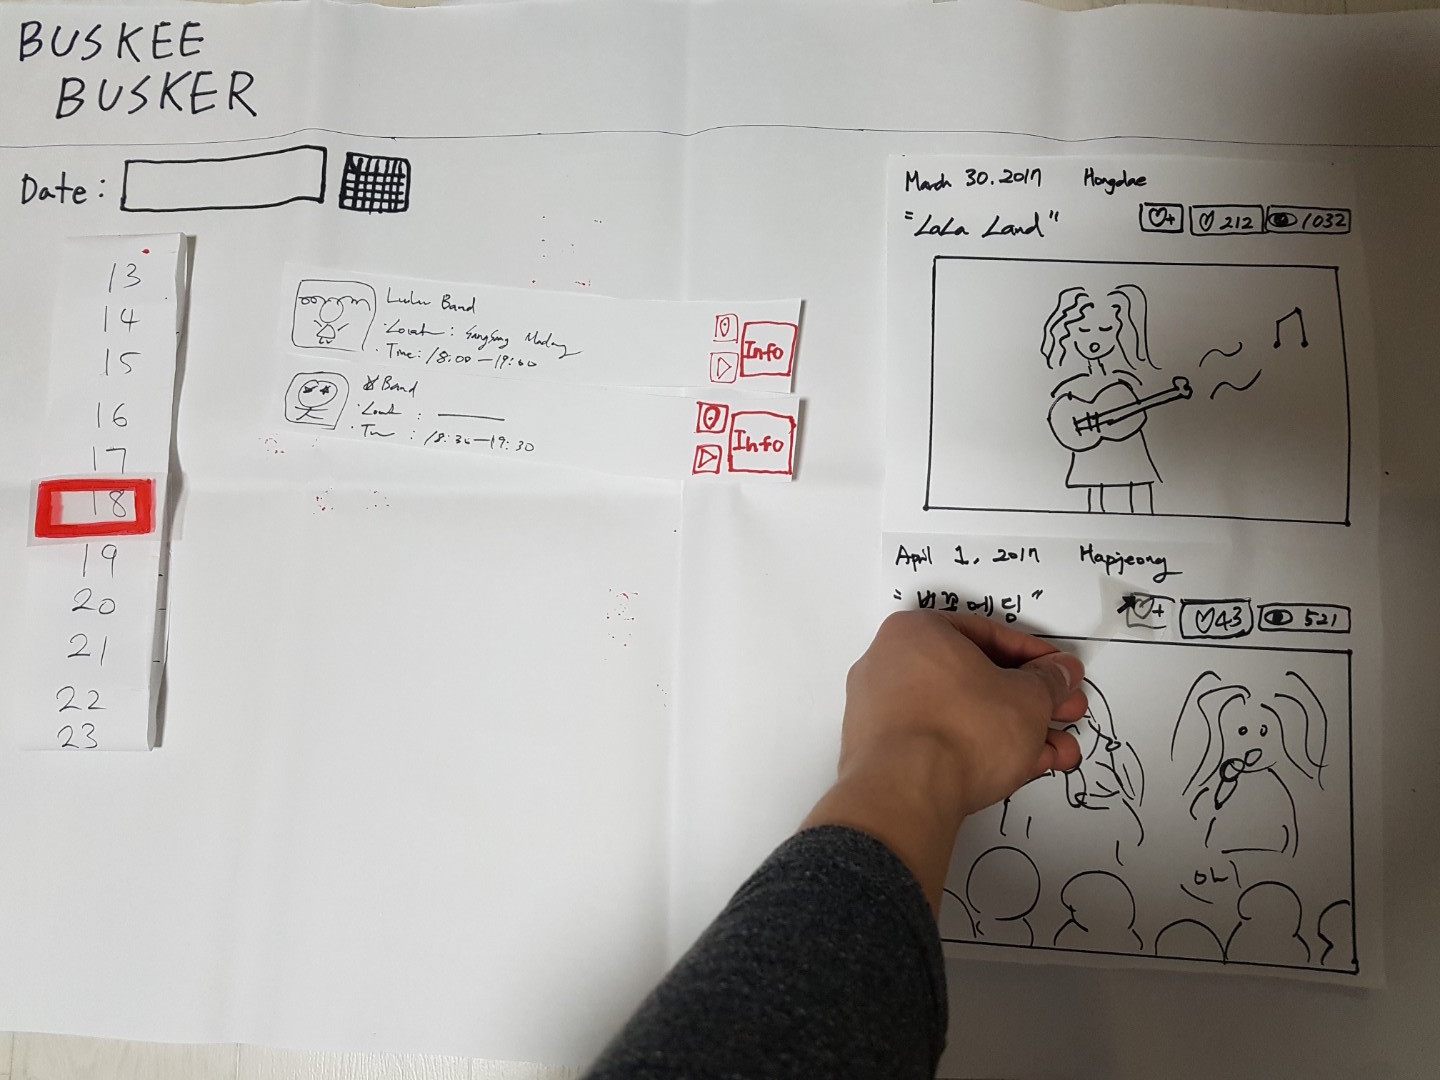 BUSKEE
BUSKER
Date:
13
14
15
16
17
18
19
20
21
22
23
Lulu Band
· Locat : SangSang Madang
· Time: 18:00 — 19:00
Info
Band
· Locat :
· Tm : 18:30 — 19:30
Info
March 30. 2017 Hongdae
"LaLa Land"
+ 212 1032
April 1. 2017 Hapjeong
"벚꽃엔딩"
+ 43 521
Oh